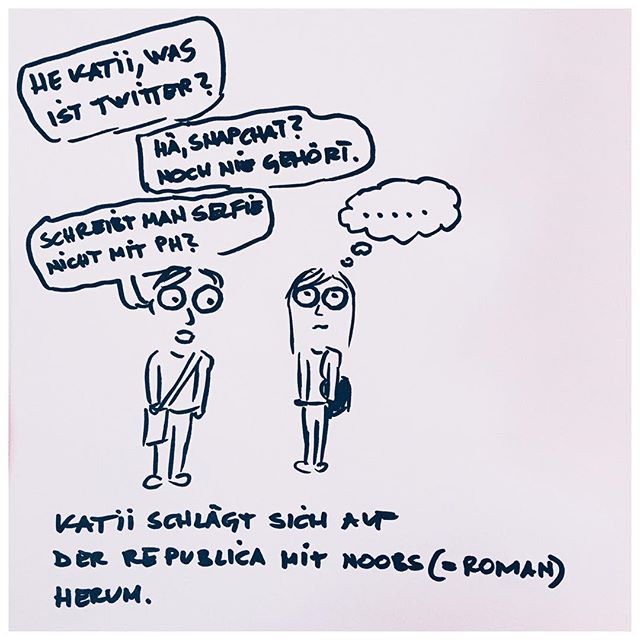 HE KATII, WAS
IST TWITTER?
HÄ, SNAPCHAT?
NOCH NIE GEHÖRT.
SCHREIBT MAN SELFIE
NICHT MIT PH?
.....
KATII SCHLÄGT SICH AUF
DER REPUBLICA MIT NOOBS (=ROMAN)
HERUM.